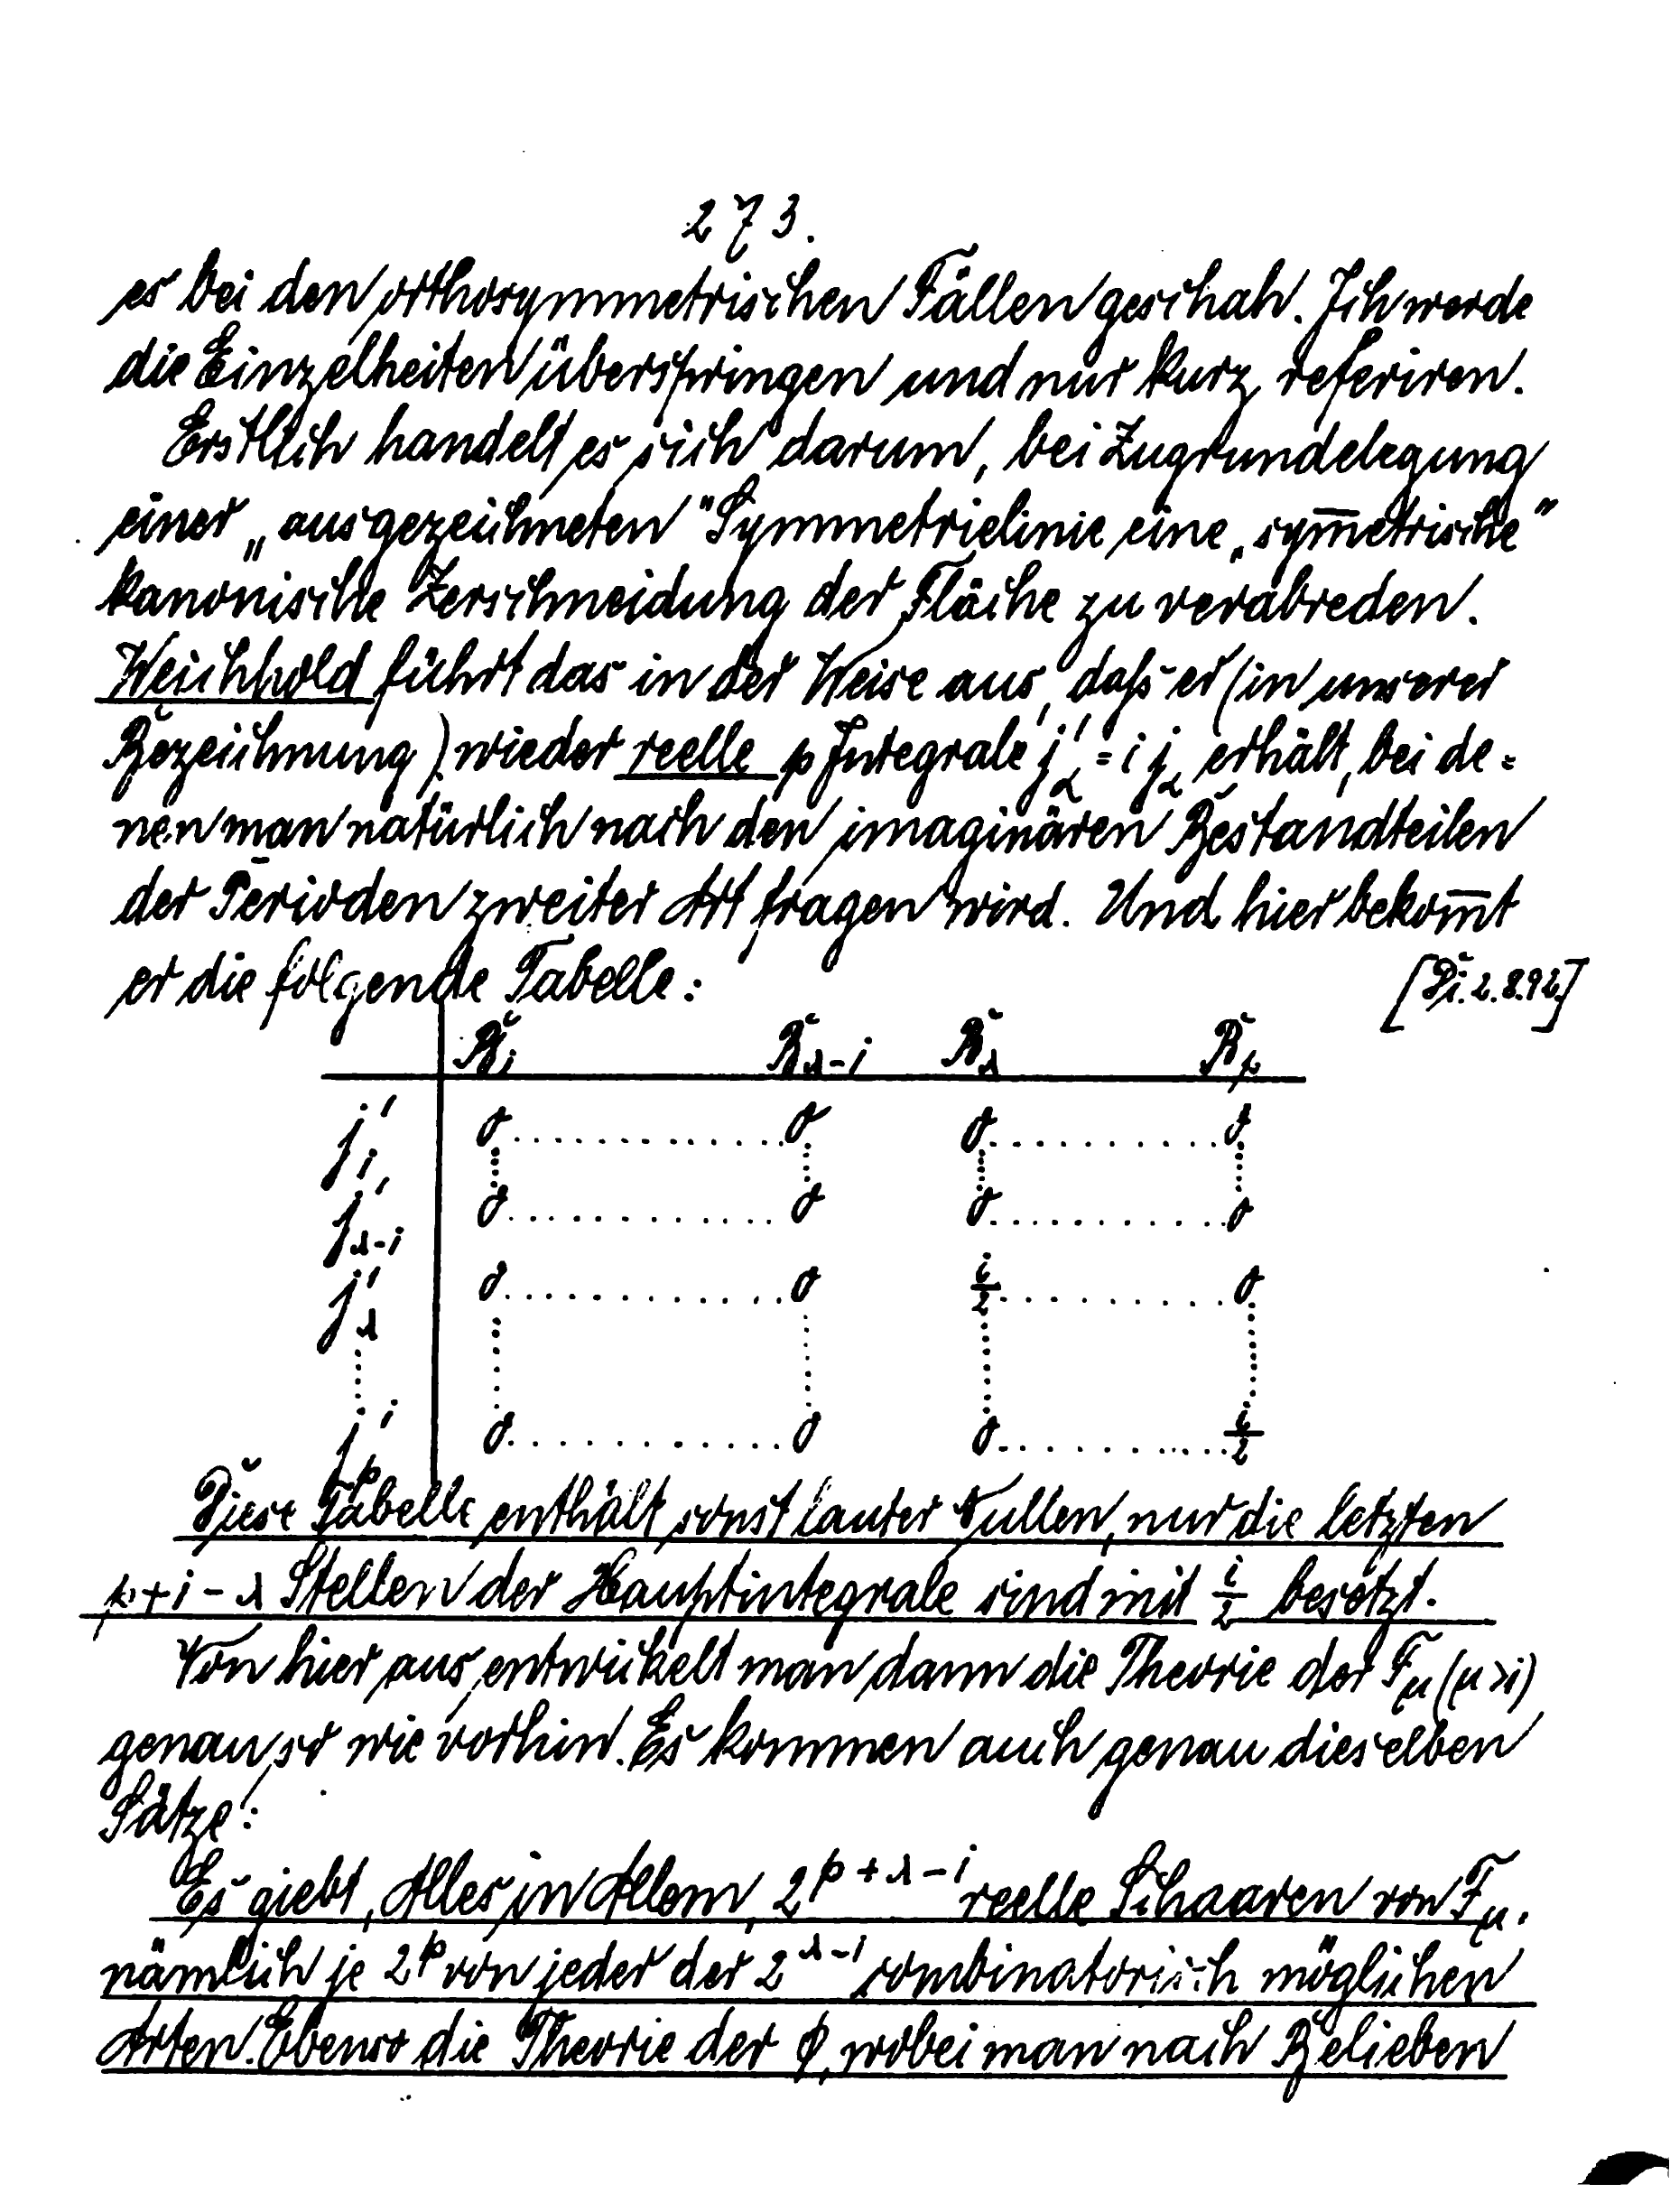 273.
es bei den orthosymmetrischen Fällen geschah. Ich werde
die Einzelheiten überspringen und nur kurz referiren.
Erstlich handelt es sich darum, bei Zugrundelegung
einer „ausgezeichneten" Symmetrielinie eine „sym̅etrische"
kanonische Zerschneidung der Fläche zu verabreden.
Weichhold führt das in der Weise aus, daß er (in unserer
Bezeichnung) wieder reelle p Integrale j'_α = i j_α erhält, bei de=
nen man natürlich nach den imaginären Bestandteilen
der Perioden zweiter Art fragen wird. Und hier bekom̅t
er die folgende Tabelle: [Di. 2.8.92.]
B_1 B_λ-1 B_λ B_p
j'_1 0 . . . . . 0 0 . . . . . 0
j'_λ-1 0 . . . . . 0 0 . . . . . 0
j'_λ 0 . . . . . 0 i/2 . . . . . 0
j'_p 0 . . . . . 0 0 . . . . . i/2
Diese Tabelle enthält sonst lauter Nullen, nur die letzten
p+1-λ Stellen der Hauptintegrale sind mit i/2 besetzt.
Von hier aus entwickelt man dann die Theorie der F_μ (μ>1)
genau so wie vorhin. Es kommen auch genau dieselben
Sätze:
Es giebt, Alles in Allem, 2^{p+λ-1} reelle Schaaren von F_μ,
nämlich je 2^p von jeder der 2^{λ-1} combinatorisch möglichen
Arten. Ebenso die Theorie der φ, wobei man nach Belieben